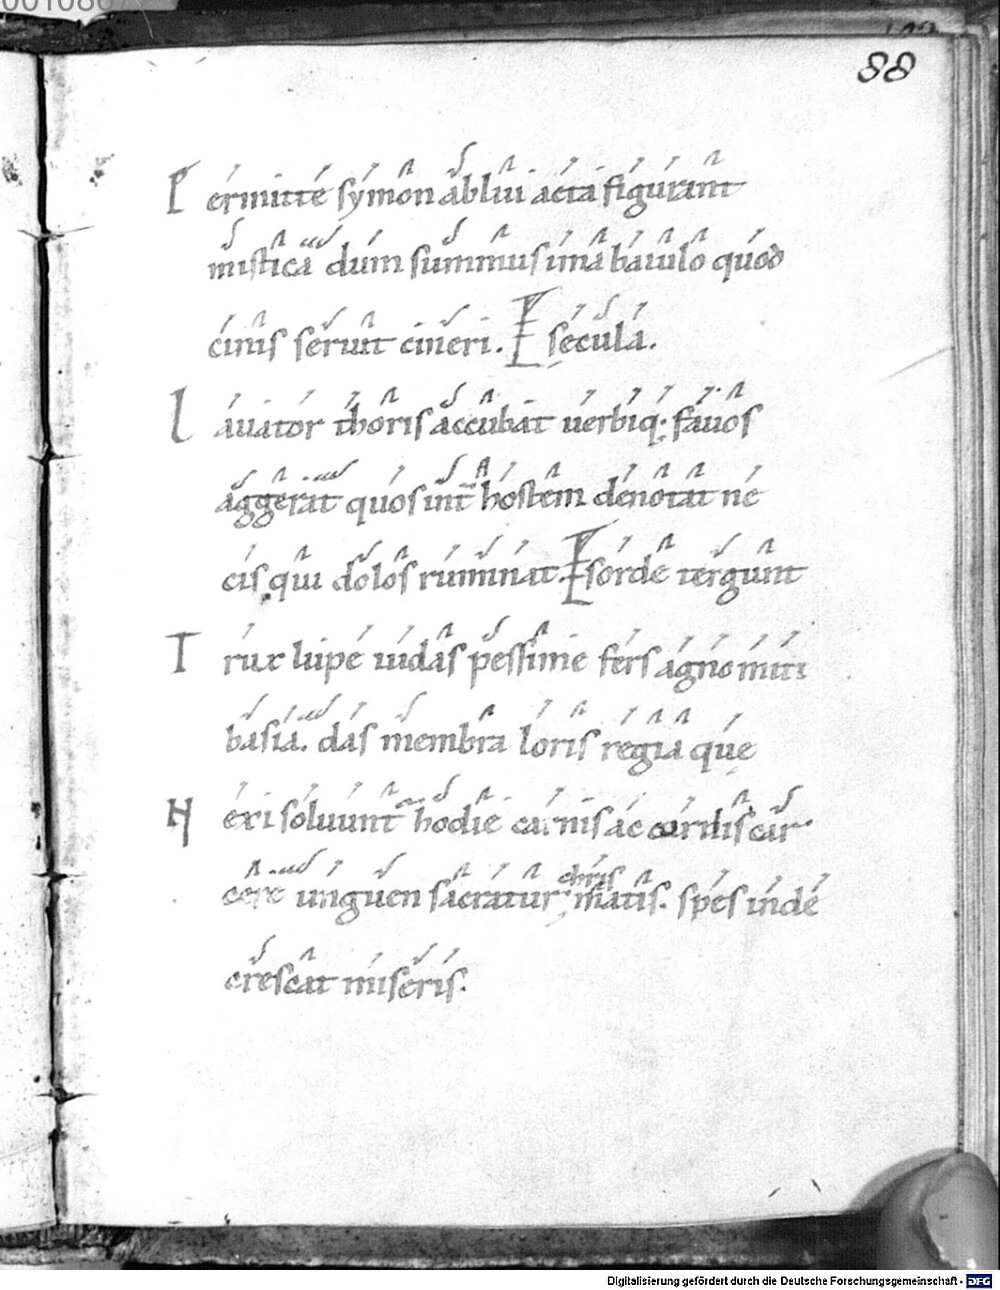 001086
88
Permitte symon ablui acta figurant
mistica dum summus ima baiulo quod
cinis seruit cineri. E secula.
Lauator thoris accubat uerbiq; fauos
aggerat quos int hostem denotat ne
cis qui dolos ruminat. E sorde tergunt
Trux lupe iudas pessime fers agno miti
basia. das membra loris regia que
Nexi soluunt hodie carnis ac cordis car
cere unguen sacratur chris matis. spes inde
crescat miseris.
Digitalisierung gefördert durch die Deutsche Forschungsgemeinschaft - DFG